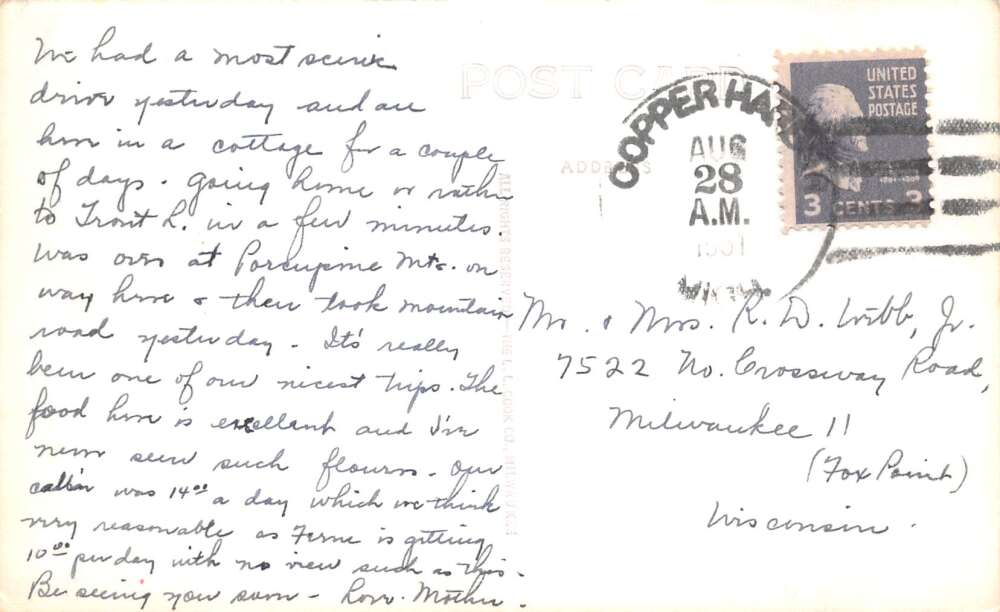 We had a most scenic
drive yesterday and are
here in a cottage for a couple
of days. Going home or rather
to Trout L. in a few minutes.
Was over at Porcupine Mts. on
way here & then took mountain
road yesterday. It's really
been one of our nicest trips. The
food here is excellant and I've
never seen such flowers. Our
cabin was 14.00 a day which we think
very reasonable as Ferne is getting
10.00 per day with no view such as this.
Be seeing you soon - Love. Mother.
POST CARD
ADDRESS
ALL RIGHTS RESERVED - THE L. L. COOK CO., MILWAUKEE
COPPER HA
AUG
28
A.M.
1951
MICH.
UNITED
STATES
POSTAGE
3 CENTS 3
Mr. & Mrs. R. D. Webb, Jr.
7522 No. Crossway Road,
Milwaukee 11
(Fox Point)
Wisconsin.